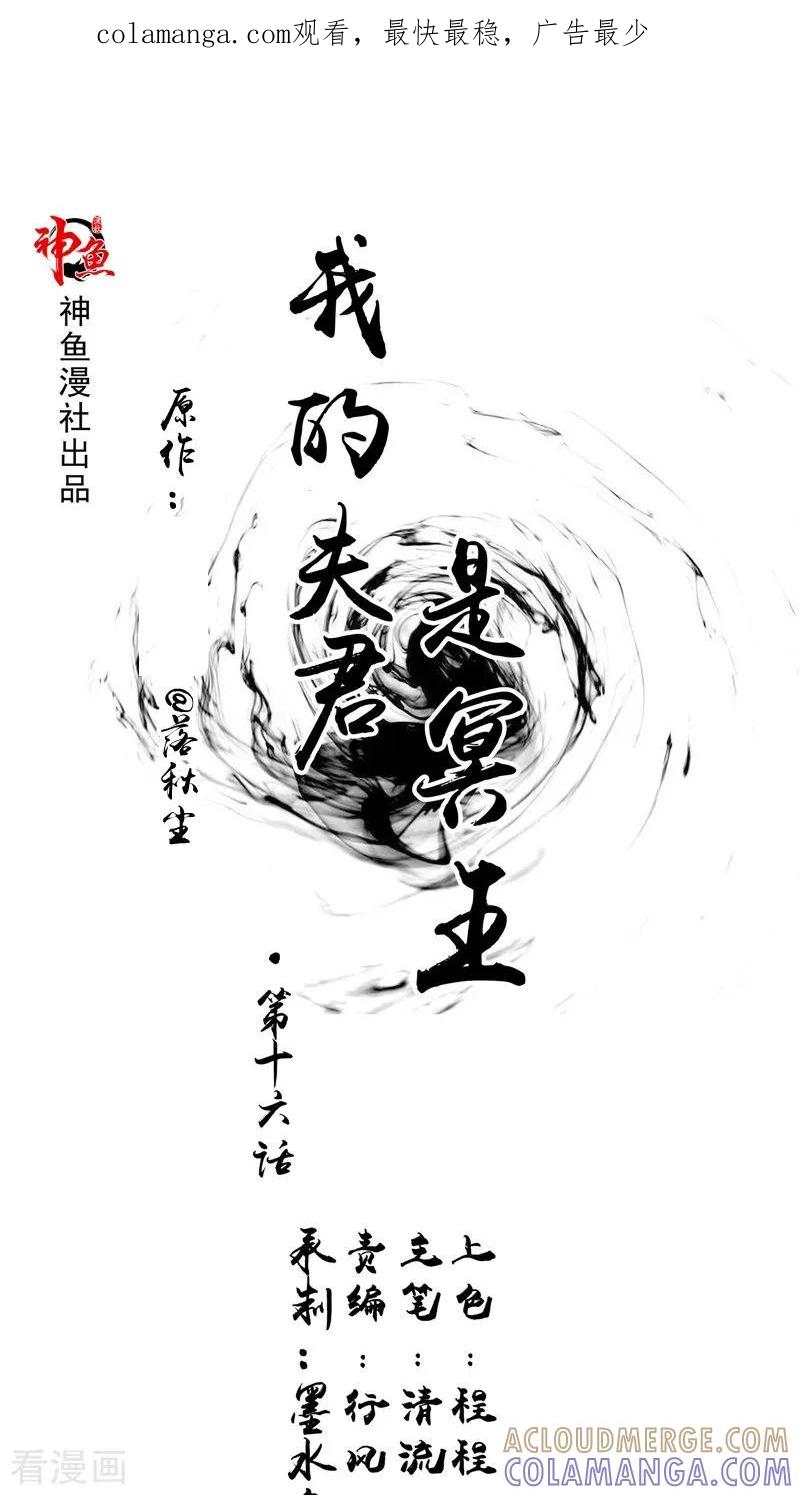 colamanga.com观看，最快最稳，广告最少
神鱼
神鱼漫社出品
原作：
@落秋尘
我的夫君
是冥王
·第十六话
上色：程程
主笔：清流
责编：行风
承制：墨水
看漫画
ACLOUDMERGE.COM
COLAMANGA.COM